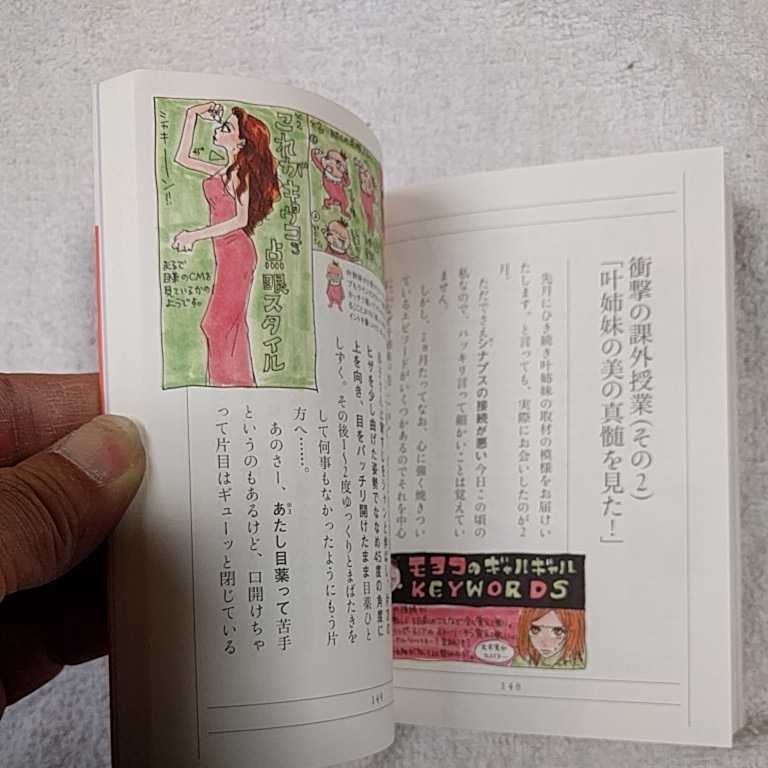 衝撃の課外授業(その2)
「叶姉妹の美の真髄を見た!」
先月にひき続き叶姉妹の取材の模様をお届けい
たします。と言っても、実際にお会いしたのが2
月。
ただでさえシナプスの接続が悪い今日この頃の
私なので、ハッキリ言って細かいことは覚えてい
ません。
しかし、2ヵ月たってなお、心に強く焼きつい
ているエピソードがいくつかあるのでそれを中心
モヨコのギャルギャル
KEYWORDS
148
これがキョウコさん
点眼スタイル
シャキーーン!!
まるで
目薬のCMを
見ているかの
ようです。
ヒザを少し曲げた姿勢でななめ45度の角度に
上を向き、目をパッチリ開けたまま目薬ひと
しずく。その後1〜2度ゆっくりとまばたきを
して何事もなかったようにもう片
方へ……。
あのさー、あたし目薬って苦手
というのもあるけど、口開けちゃ
って片目はギューッと閉じている
149